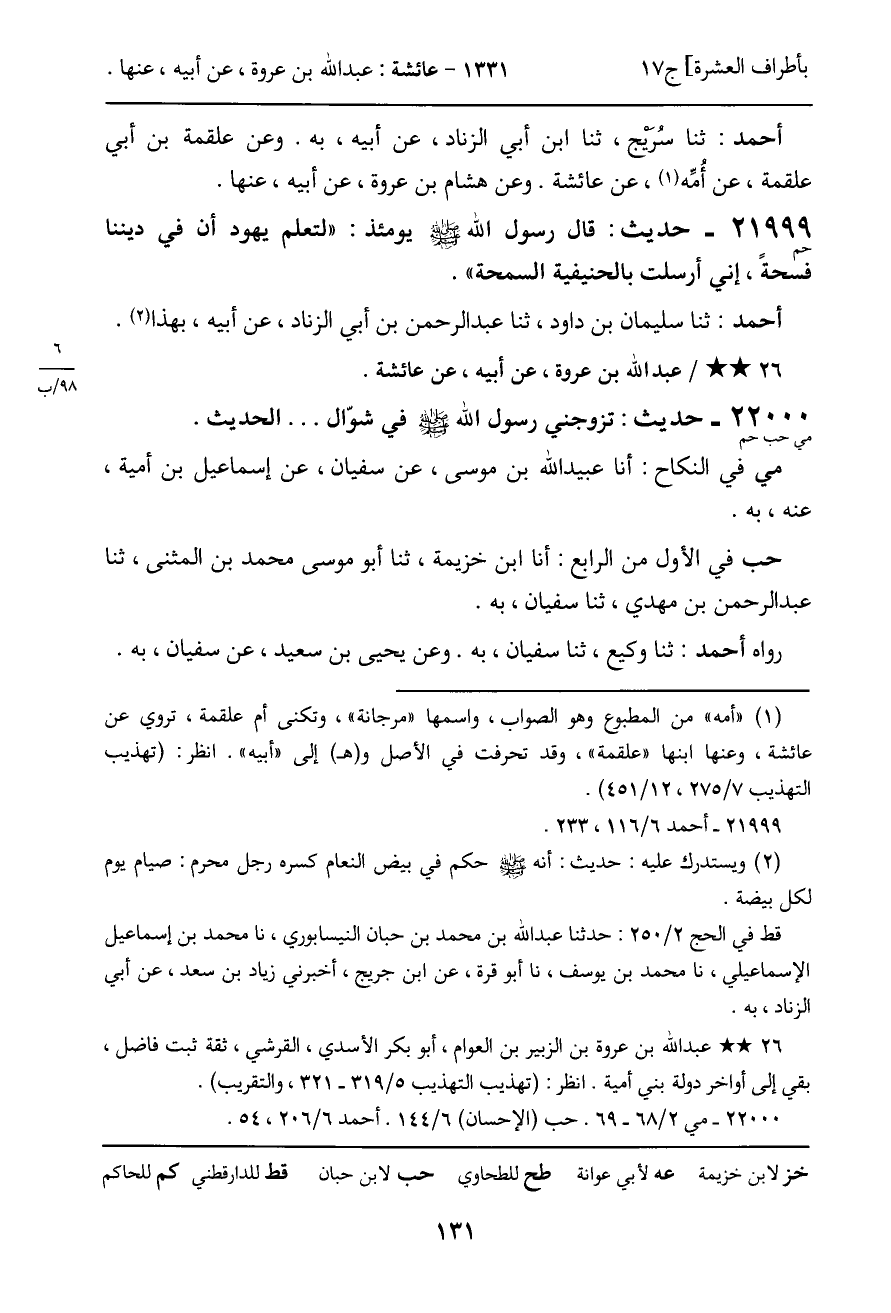 بأطراف العشرة] ج١٧ ١٣٣١ - عائشة : عبدالله بن عروة ، عن أبيه ، عنها .
أحمد : ثنا سُرَيْج ، ثنا ابن أبي الزناد ، عن أبيه ، به . وعن علقمة بن أبي
علقمة ، عن أُمِّه(١) ، عن عائشة . وعن هشام بن عروة ، عن أبيه ، عنها .
٢١٩٩٩ ـ حديث : قال رسول الله ﷺ يومئذ : «لتعلم يهود أن في ديننا
حم
فسحةً ، إني أرسلت بالحنيفية السمحة» .
أحمد : ثنا سليمان بن داود ، ثنا عبدالرحمن بن أبي الزناد ، عن أبيه ، بهذا(٢) .
٦
٩٨/ب
٢٦ ★★ / عبدالله بن عروة ، عن أبيه ، عن عائشة .
٢٢٠٠٠ ـ حديث : تزوجني رسول الله ﷺ في شوّال ... الحديث .
مي حب حم
مي في النكاح : أنا عبيدالله بن موسى ، عن سفيان ، عن إسماعيل بن أمية ،
عنه ، به .
حب في الأول من الرابع : أنا ابن خزيمة ، ثنا أبو موسى محمد بن المثنى ، ثنا
عبدالرحمن بن مهدي ، ثنا سفيان ، به .
رواه أحمد : ثنا وكيع ، ثنا سفيان ، به . وعن يحيى بن سعيد ، عن سفيان ، به .
(١) «أمه» من المطبوع وهو الصواب ، واسمها «مرجانة» ، وتكنى أم علقمة ، تروي عن
عائشة ، وعنها ابنها «علقمة» ، وقد تحرفت في الأصل و(هـ) إلى «أبيه» . انظر : (تهذيب
التهذيب ٢٧٥/٧ ، ٤٥١/١٢) .
٢١٩٩٩ ـ أحمد ١١٦/٦ ، ٢٣٣ .
(٢) ويستدرك عليه : حديث : أنه ﷺ حكم في بيض النعام كسره رجل محرم : صيام يوم
لكل بيضة .
قط في الحج ٢٥٠/٢ : حدثنا عبدالله بن محمد بن حبان النيسابوري ، نا محمد بن إسماعيل
الإسماعيلي ، نا محمد بن يوسف ، نا أبو قرة ، عن ابن جريج ، أخبرني زياد بن سعد ، عن أبي
الزناد ، به .
٢٦ ★★ عبدالله بن عروة بن الزبير بن العوام ، أبو بكر الأسدي ، القرشي ، ثقة ثبت فاضل ،
بقي إلى أواخر دولة بني أمية . انظر : (تهذيب التهذيب ٣١٩/٥ ـ ٣٢١ ، والتقريب) .
٢٢٠٠٠ ـ مي ٦٨/٢ ـ ٦٩ . حب (الإحسان) ١٤٤/٦ . أحمد ٢٠٦/٦ ، ٥٤ .
خز لابن خزيمة عه لأبي عوانة طح للطحاوي حب لابن حبان قط للدارقطني كم للحاكم
١٣١